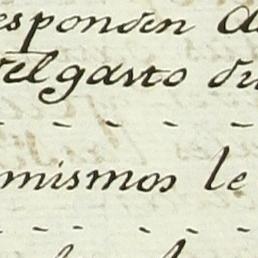 esponden
el gasto du
mismos le